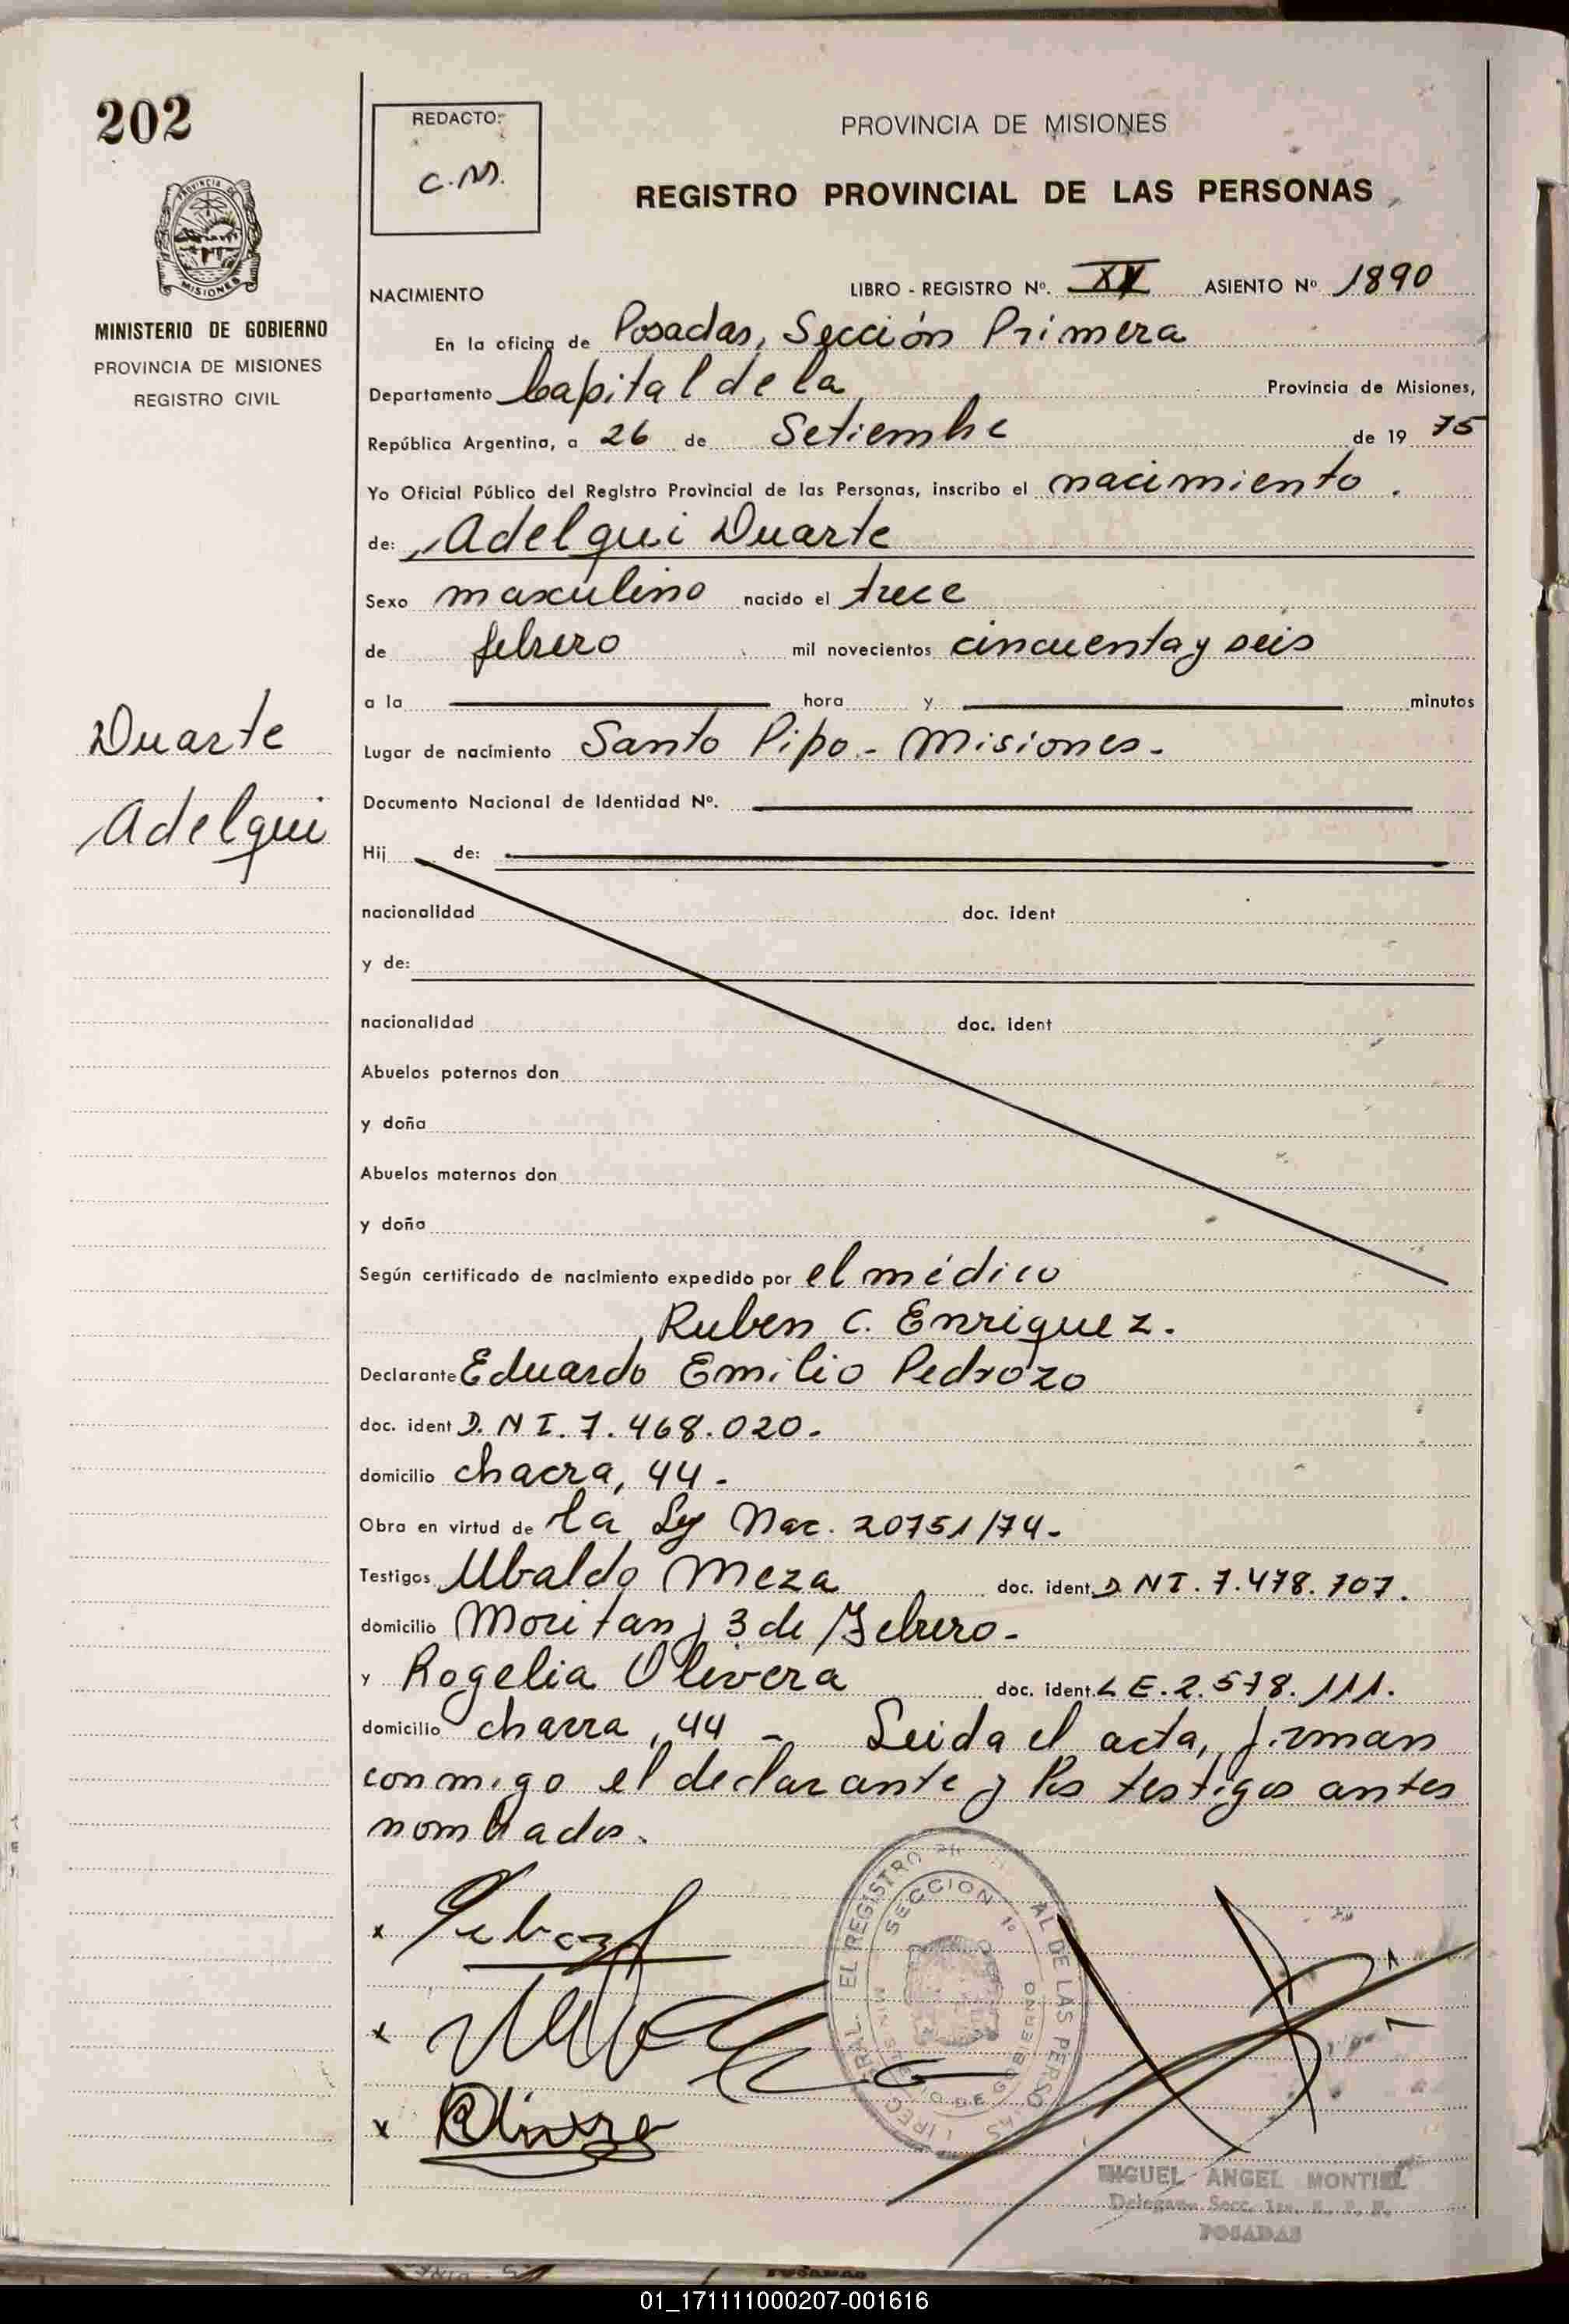 202
REDACTO:
C.M.
PROVINCIA DE MISIONES
REGISTRO PROVINCIAL DE LAS PERSONAS
PROVINCIA DE
MISIONES
MINISTERIO DE GOBIERNO
PROVINCIA DE MISIONES
REGISTRO CIVIL
NACIMIENTO LIBRO - REGISTRO Nº. XV ASIENTO Nº 1890
En la oficina de Posadas, Sección Primera
Departamento Capital de la Provincia de Misiones,
República Argentina, a 26 de Setiembre de 19 75
Yo Oficial Público del Registro Provincial de las Personas, inscribo el nacimiento.
de: Adelqui Duarte
Sexo masculino nacido el trece
de febrero mil novecientos cincuenta y seis
a la hora y minutos
Duarte
Adelqui
Lugar de nacimiento Santo Pipo - Misiones -
Documento Nacional de Identidad Nº.
Hij de:
nacionalidad doc. ident
y de:
nacionalidad doc. ident
Abuelos paternos don
y doña
Abuelos maternos don
y doña
Según certificado de nacimiento expedido por el médico
Ruben C. Enriquez.
Declarante Eduardo Emilio Pedrozo
doc. ident D.N I. 7.468.020.
domicilio chacra, 44 -
Obra en virtud de la Ley Nac. 20751/74-
Testigos Ubaldo Meza doc. ident D N I. 7.478.707.
domicilio Moritan y 3 de Febrero -
y Rogelia Olivera doc. ident. L E. 2.578.111.
domicilio chacra, 44 - Leida el acta, firman
conmigo el declarante y los testigos antes
nombrados.
x
x
x
SECCION 1º
MINISTERIO DE GOBIERNO
MIGUEL ANGEL MONTIEL
POSADAS
01_171111000207-001616